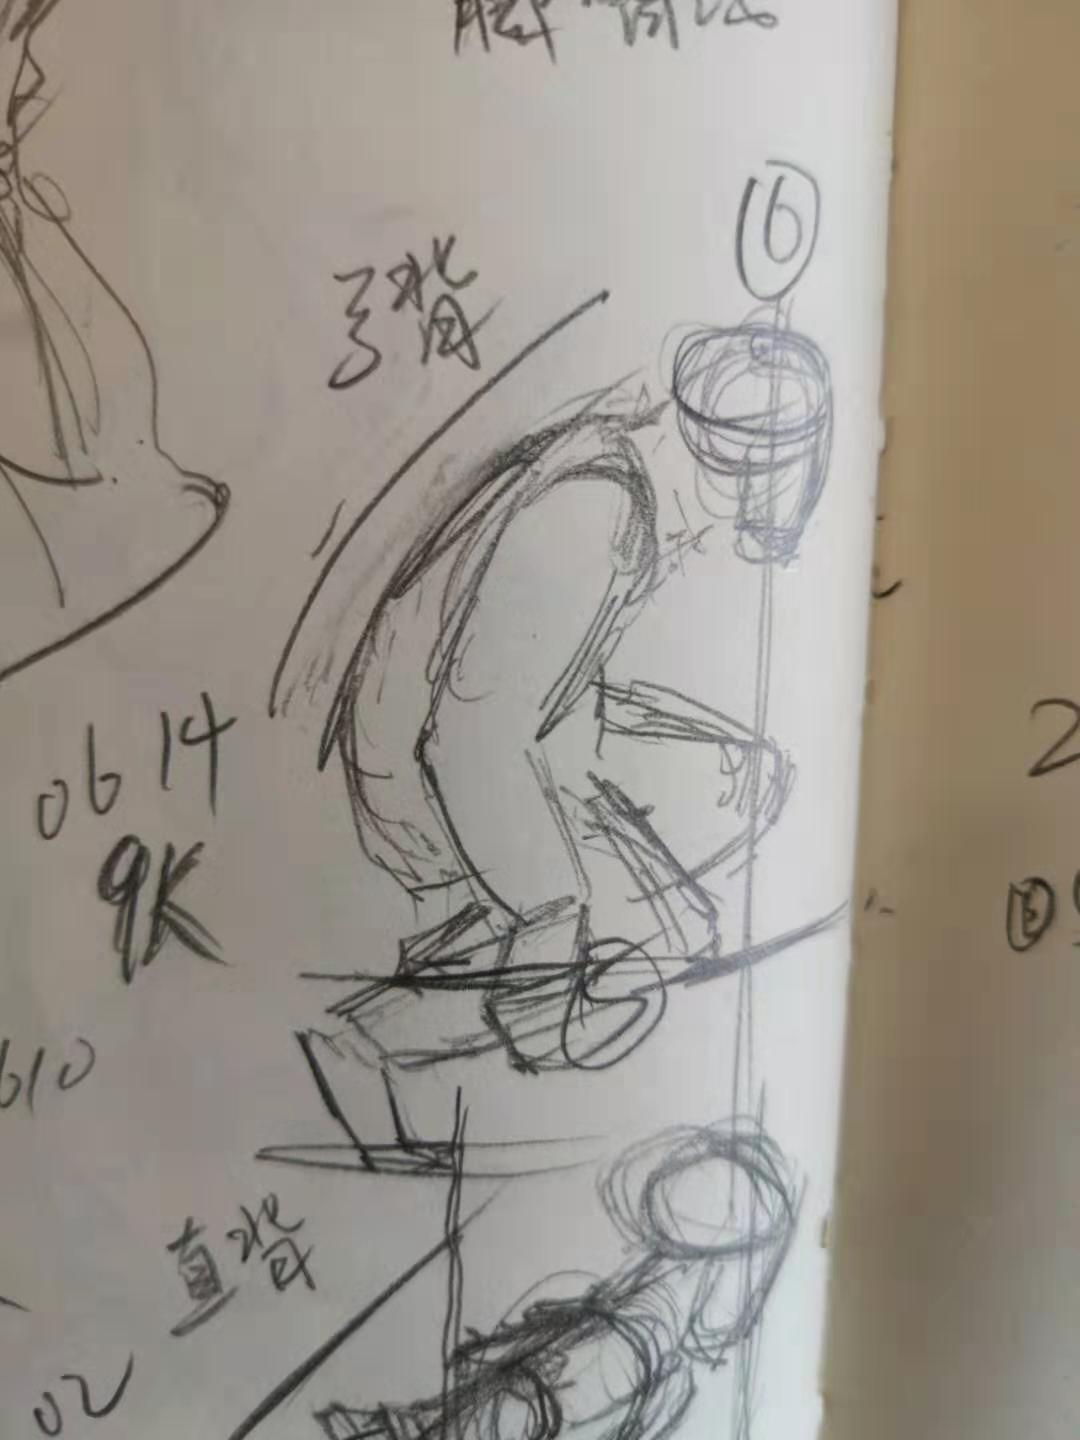 6
弓背
0614
9K
610
直背
02
2